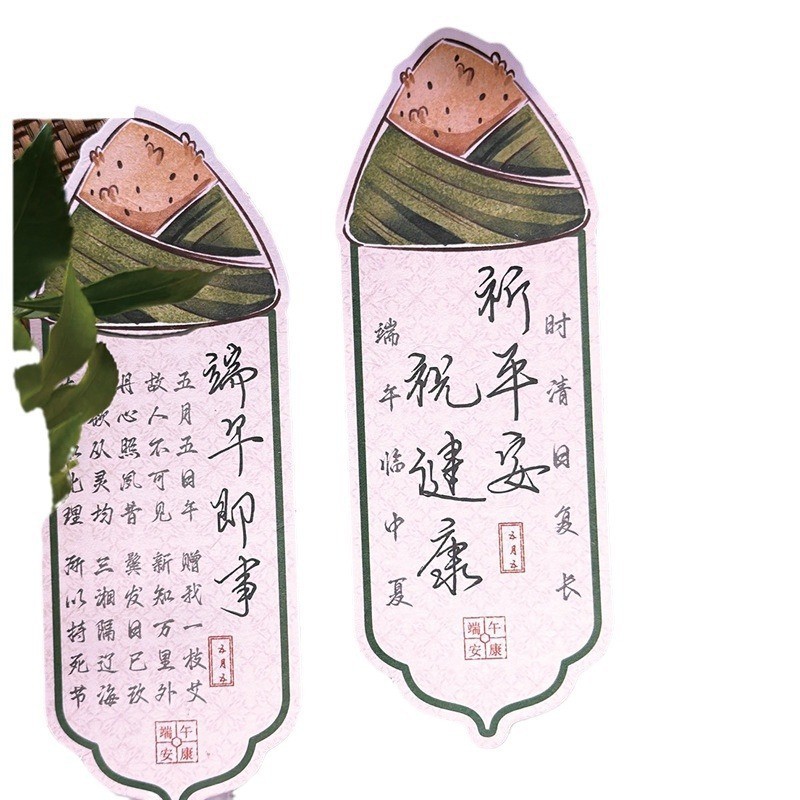 端午即事
五月五
五月五日午 赠我一枝艾
故人不可见 新知万里外
丹心照夙昔 鬓发日已改
欲从灵均 三湘隔辽海
此理 所以持死节
端午
安康
时清日复长
祈平安
祝健康
端午临中夏
五月五
端午
安康